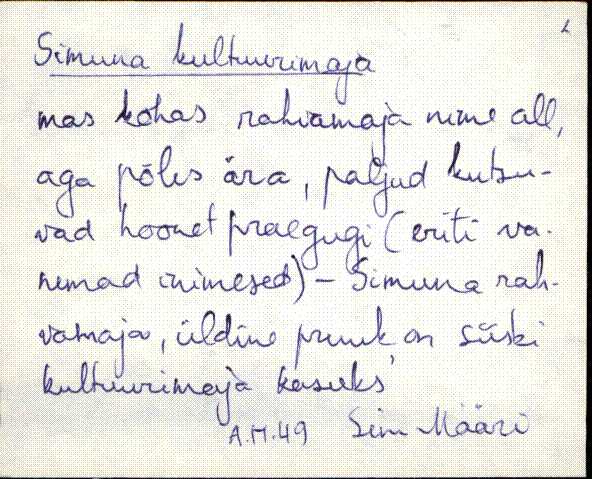 Simuna kultuurimaja
mas kohas rahvamaja nime all,
aga põles ära, paljud kutsu-
vad hoonet praegugi (eriti va-
nemad inimesed) – Simuna rah-
vamaja, üldine pruuk on siiski
kultuurimaja kasuks
A.M.49 Sim Määri